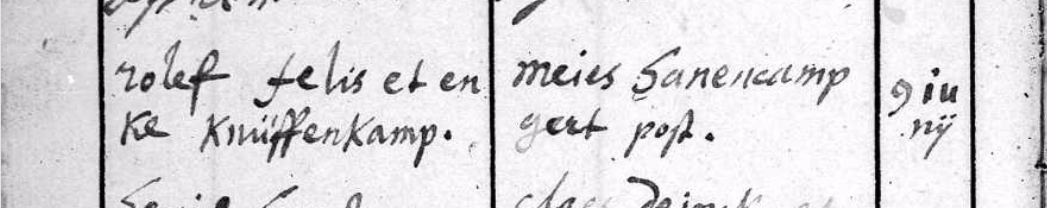 rolef felis et en
ke knüffenkamp.
meies Hanencamp
gert post.
9 iu
nÿ